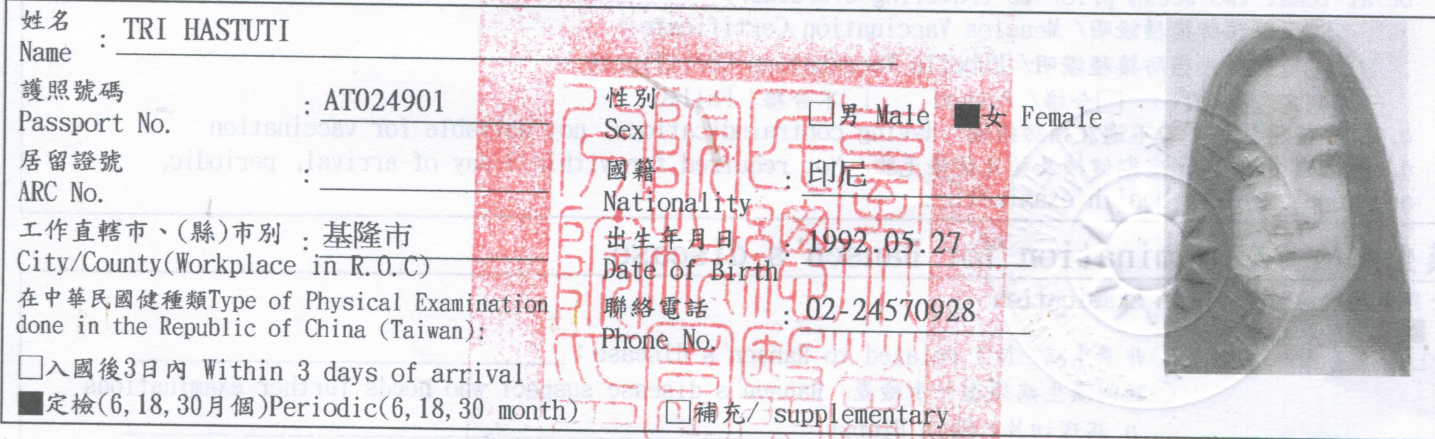 姓名
Name : TRI HASTUTI
護照號碼
Passport No. : AT024901
居留證號
ARC No. :
工作直轄市、(縣)市別 : 基隆市
City/County(Workplace in R.O.C)
在中華民國健種類Type of Physical Examination
done in the Republic of China (Taiwan):
□入國後3日內 Within 3 days of arrival
■定檢(6,18,30月個)Periodic(6,18,30 month) □補充/ supplementary
性別
Sex : □男 Male ■女 Female
國籍
Nationality : 印尼
出生年月日
Date of Birth : 1992.05.27
聯絡電話
Phone No. : 02-24570928